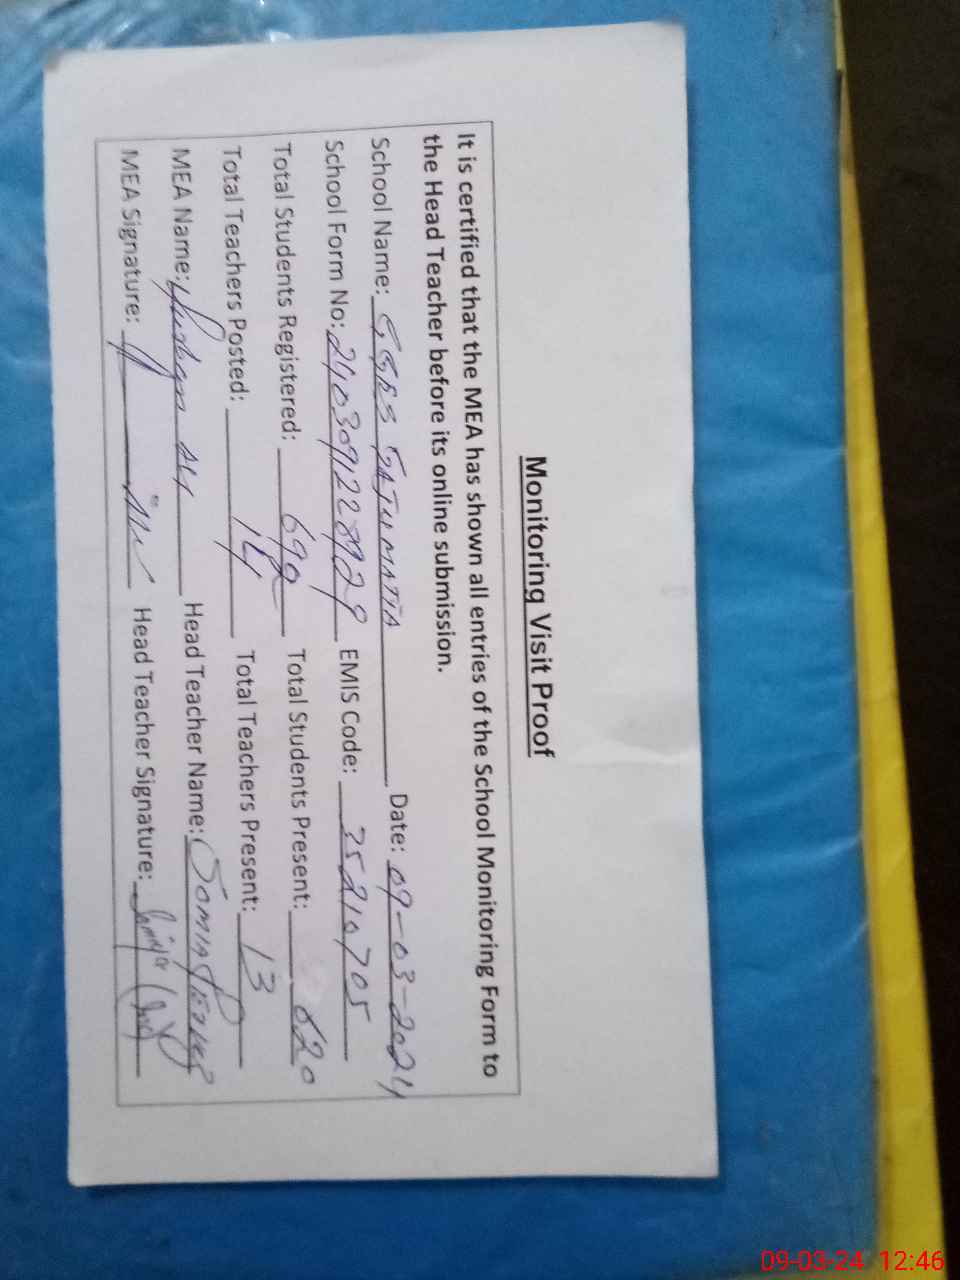 Monitoring Visit Proof
It is certified that the MEA has shown all entries of the School Monitoring Form to
the Head Teacher before its online submission.
School Name: Date: 09-03-2024
School Form No: 2403091228929 EMIS Code: 35210705
Total Students Registered: 692 Total Students Present: 620
Total Teachers Posted: 14 Total Teachers Present: 13
MEA Name: Head Teacher Name:
MEA Signature: Head Teacher Signature:
09-03-24 12:46